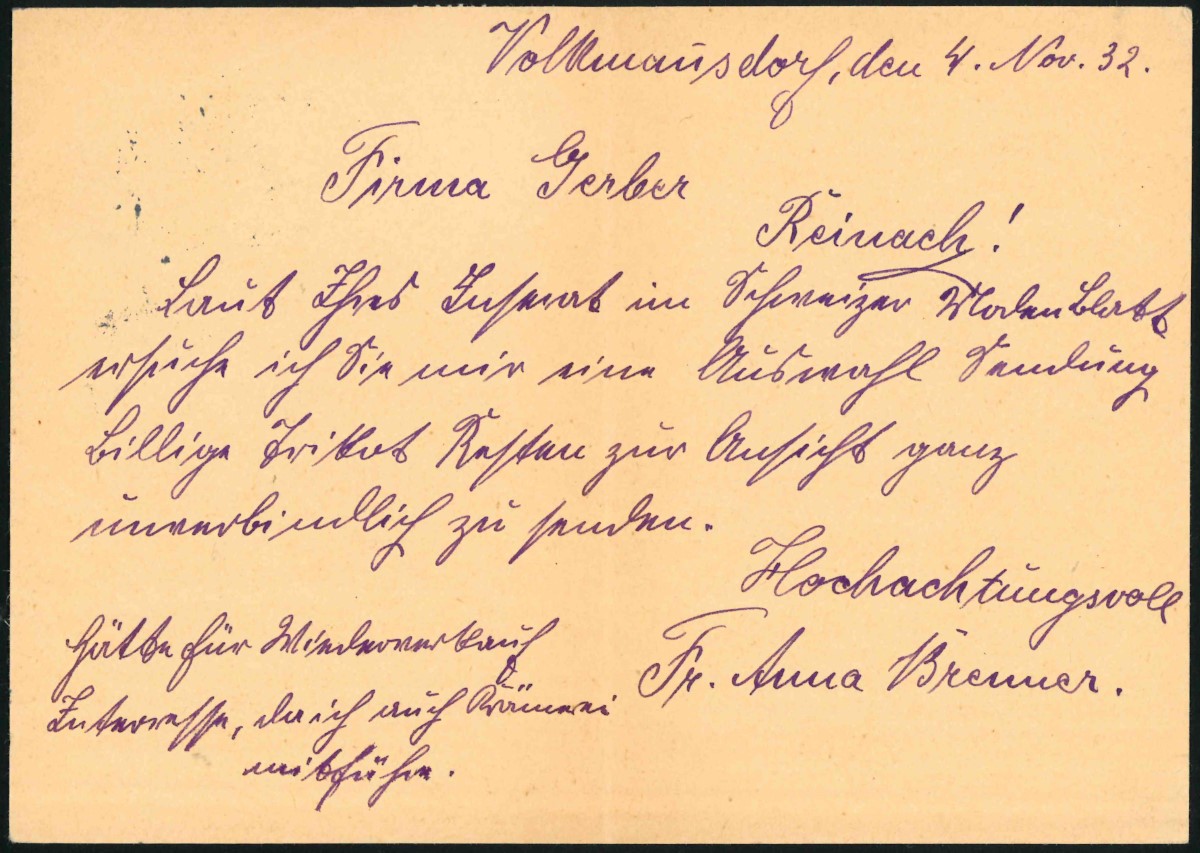 Volkmausdorf, den 4. Nov. 32.
Firma Gerber
Reinach!
Laut Ihres Inserat im Schweizer Modenblatt
ersuche ich Sie mir eine Auswahl Sendung
billige Trikot Resten zur Ansicht ganz
unverbindlich zu senden.
Hochachtungsvoll
Fr. Anna Brenner.
Hätte für Wiederverkauf
Interresse, da ich auch Krämerei
mitführe.